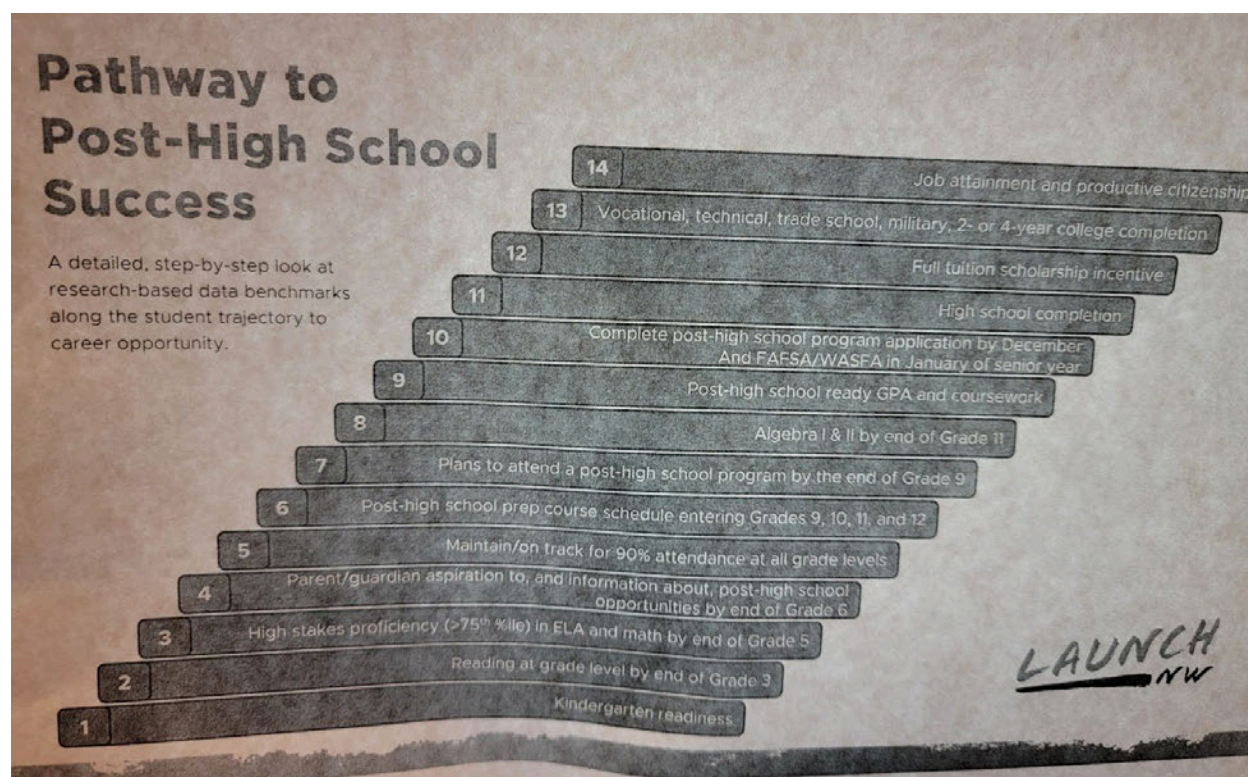 Pathway to
Post-High School
Success
A detailed, step-by-step look at
research-based data benchmarks
along the student trajectory to
career opportunity.
14 Job attainment and productive citizenship
13 Vocational, technical, trade school, military, 2- or 4-year college completion
12 Full tuition scholarship incentive
11 High school completion
10 Complete post-high school program application by December
And FAFSA/WASFA in January of senior year
9 Post-high school ready GPA and coursework
8 Algebra I & II by end of Grade 11
7 Plans to attend a post-high school program by the end of Grade 9
6 Post-high school prep course schedule entering Grades 9, 10, 11, and 12
5 Maintain/on track for 90% attendance at all grade levels
4 Parent/guardian aspiration to, and information about, post-high school
opportunities by end of Grade 6
3 High stakes proficiency (>75th %ile) in ELA and math by end of Grade 5
2 Reading at grade level by end of Grade 3
1 Kindergarten readiness
LAUNCH
NW